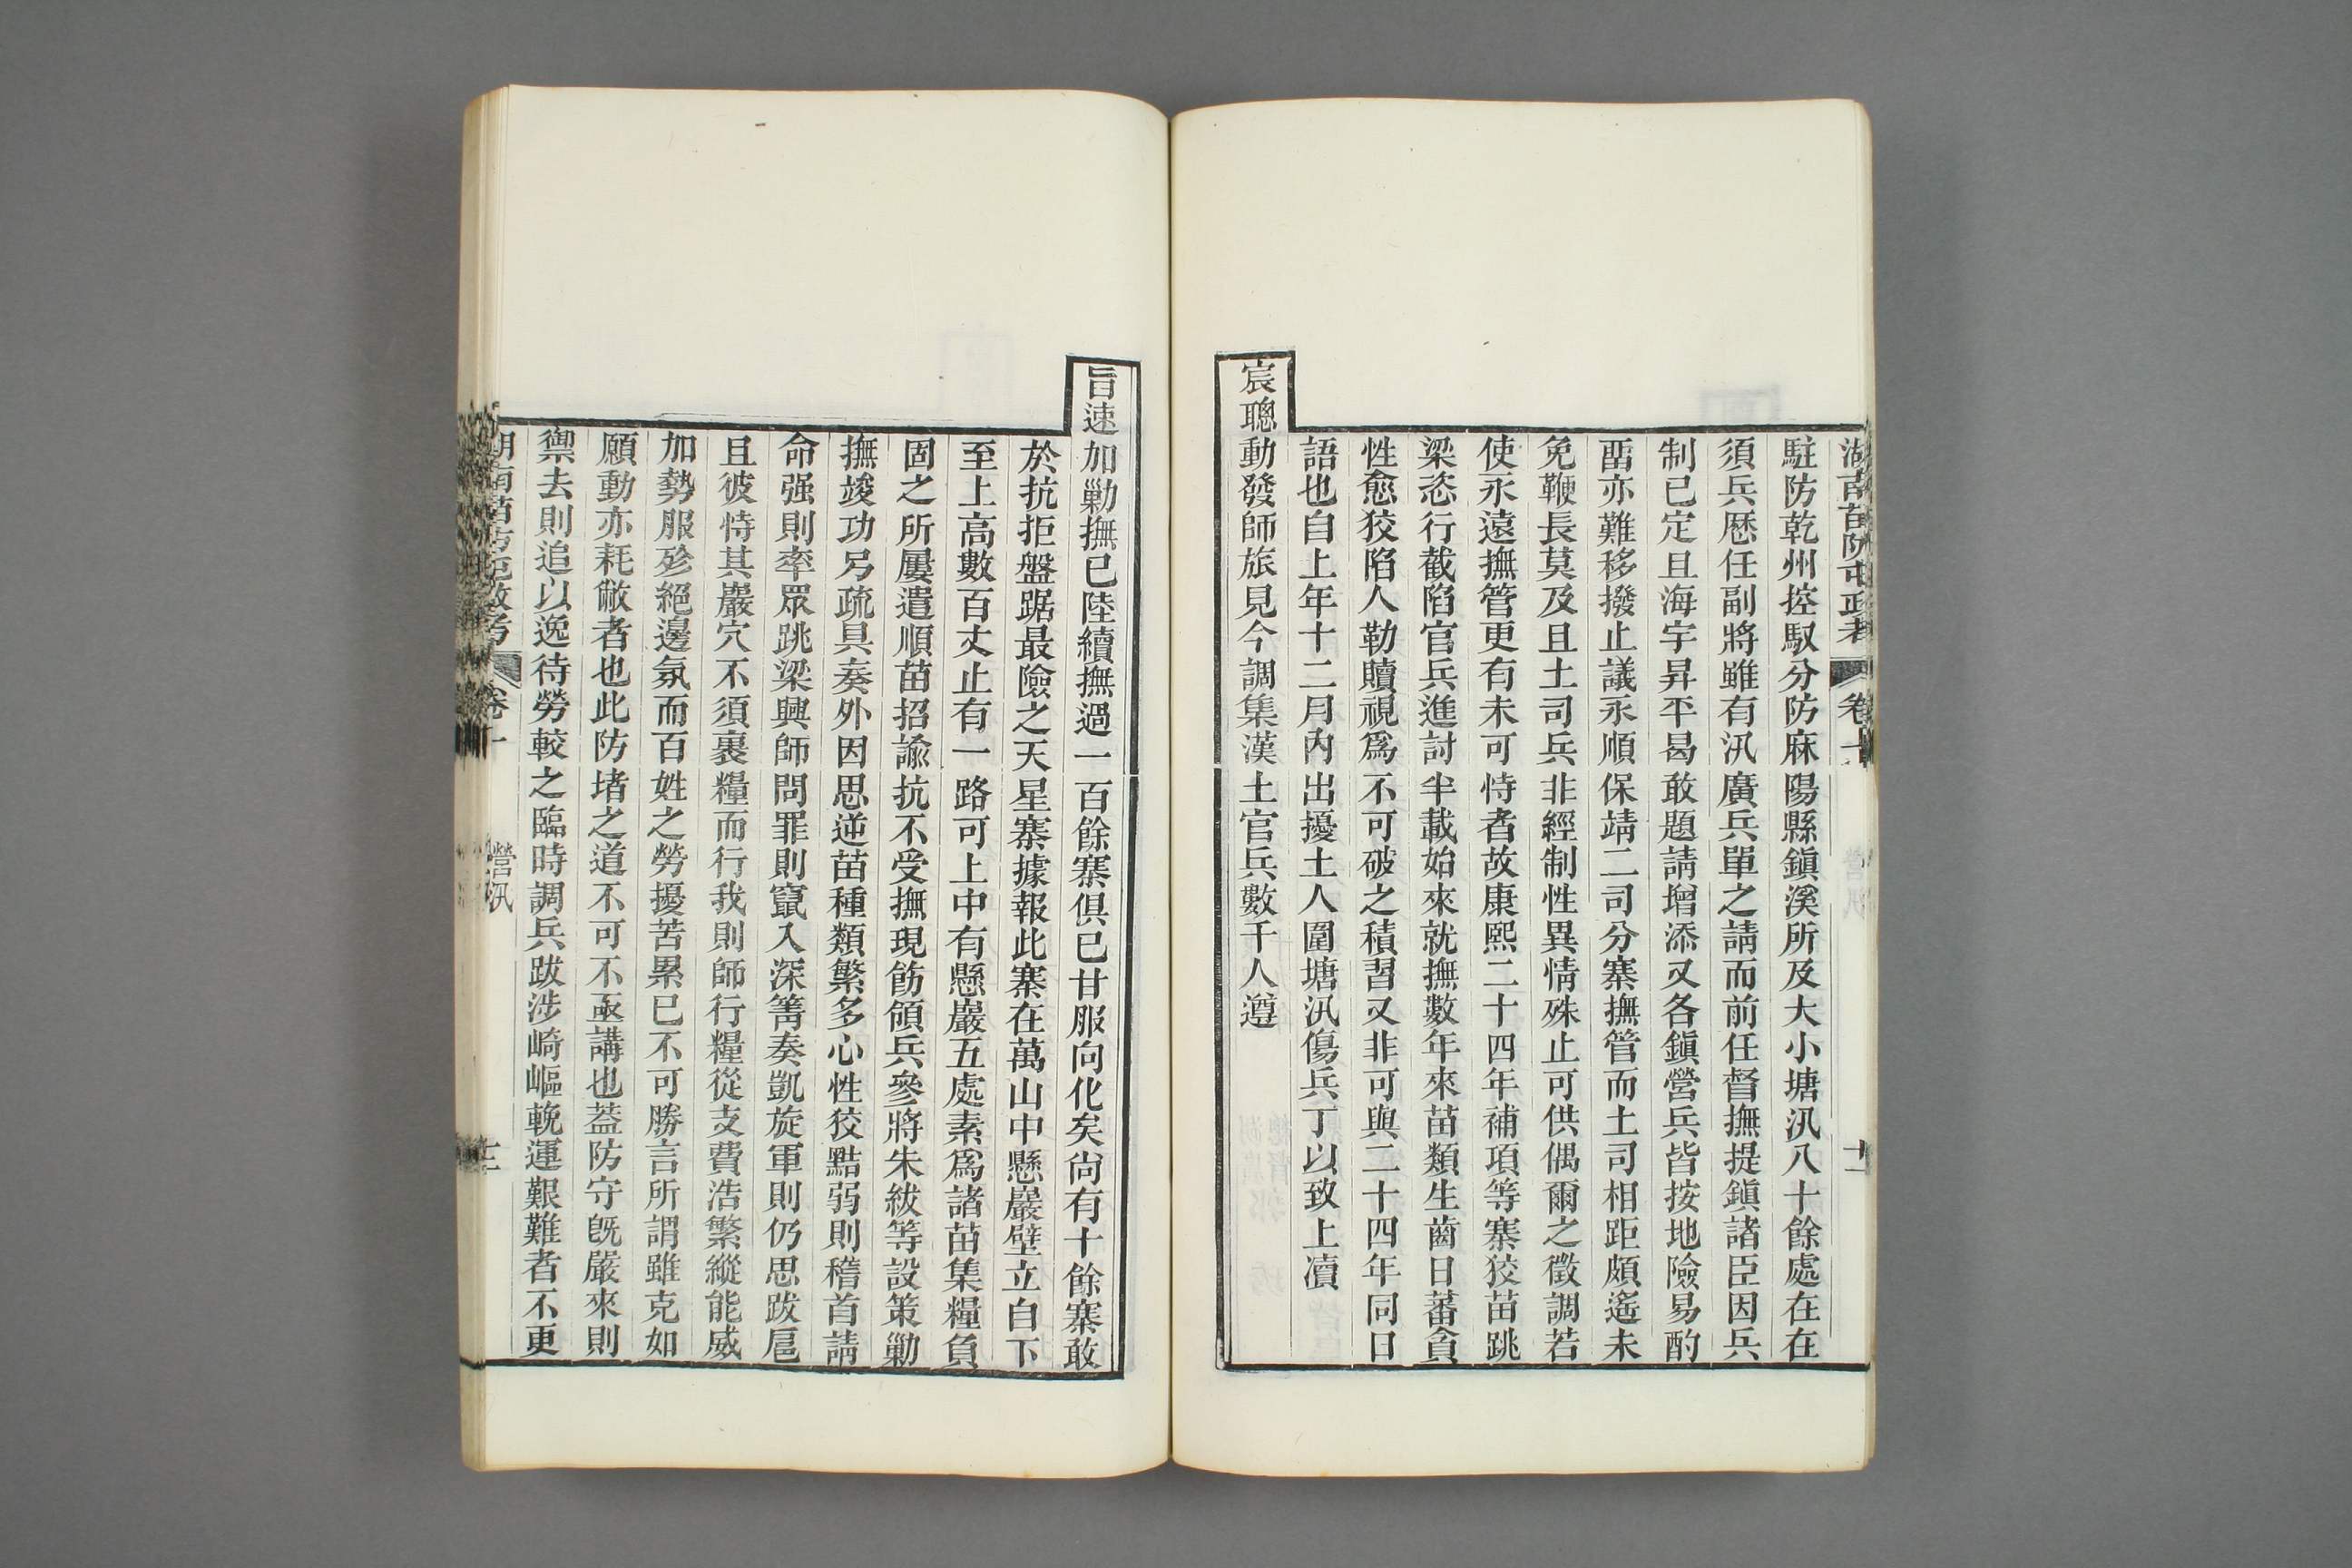 駐防乾州控馭分防麻陽縣鎭溪所及大小塘汛八十餘處在在
須兵厯任副將雖有汛廣兵單之請而前任督撫提鎭諸臣因兵
制已定且海宇昇平曷敢題請增添又各鎭營兵皆按地險易酌
畱亦難移撥止議永順保靖二司分寨撫管而土司相距頗遙未
免鞭長莫及且土司兵非經制性異情殊止可供偶爾之徵調若
使永遠撫管更有未可恃者故康熙二十四年補項等寨狡苗跳
梁恣行截陷官兵進討半載始來就撫數年來苗類生齒日蕃貪
性愈狡陷人勒贖視爲不可破之積習又非可與二十四年同日
語也自上年十二月內出擾土人圍塘汛傷兵丁以致上凟
宸聰動發師旅見今調集漢土官兵數千人遵
旨速加勦撫已陸續撫過一百餘寨俱已甘服向化矣尙有十餘寨敢
於抗拒盤踞最險之天星寨據報此寨在萬山中懸巖壁立自下
至上高數百丈止有一路可上中有懸巖五處素爲諸苗集糧負
固之所屢遣順苗招諭抗不受撫現飭領兵參將朱紱等設策勦
撫竣功另疏具奏外因思逆苗種類繁多心性狡黠弱則稽首請
命强則率眾跳梁興師問罪則竄入深箐奏凱旋軍則仍思跋扈
且彼恃其巖穴不須裹糧而行我則師行糧從支費浩繁縱能威
加勢服殄絕邊氛而百姓之勞擾苦累已不可勝言所謂雖克如
願動亦耗敝者也此防堵之道不可不亟講也葢防守旣嚴來則
禦去則追以逸待勞較之臨時調兵跋涉崎嶇輓運艱難者不更
營汛